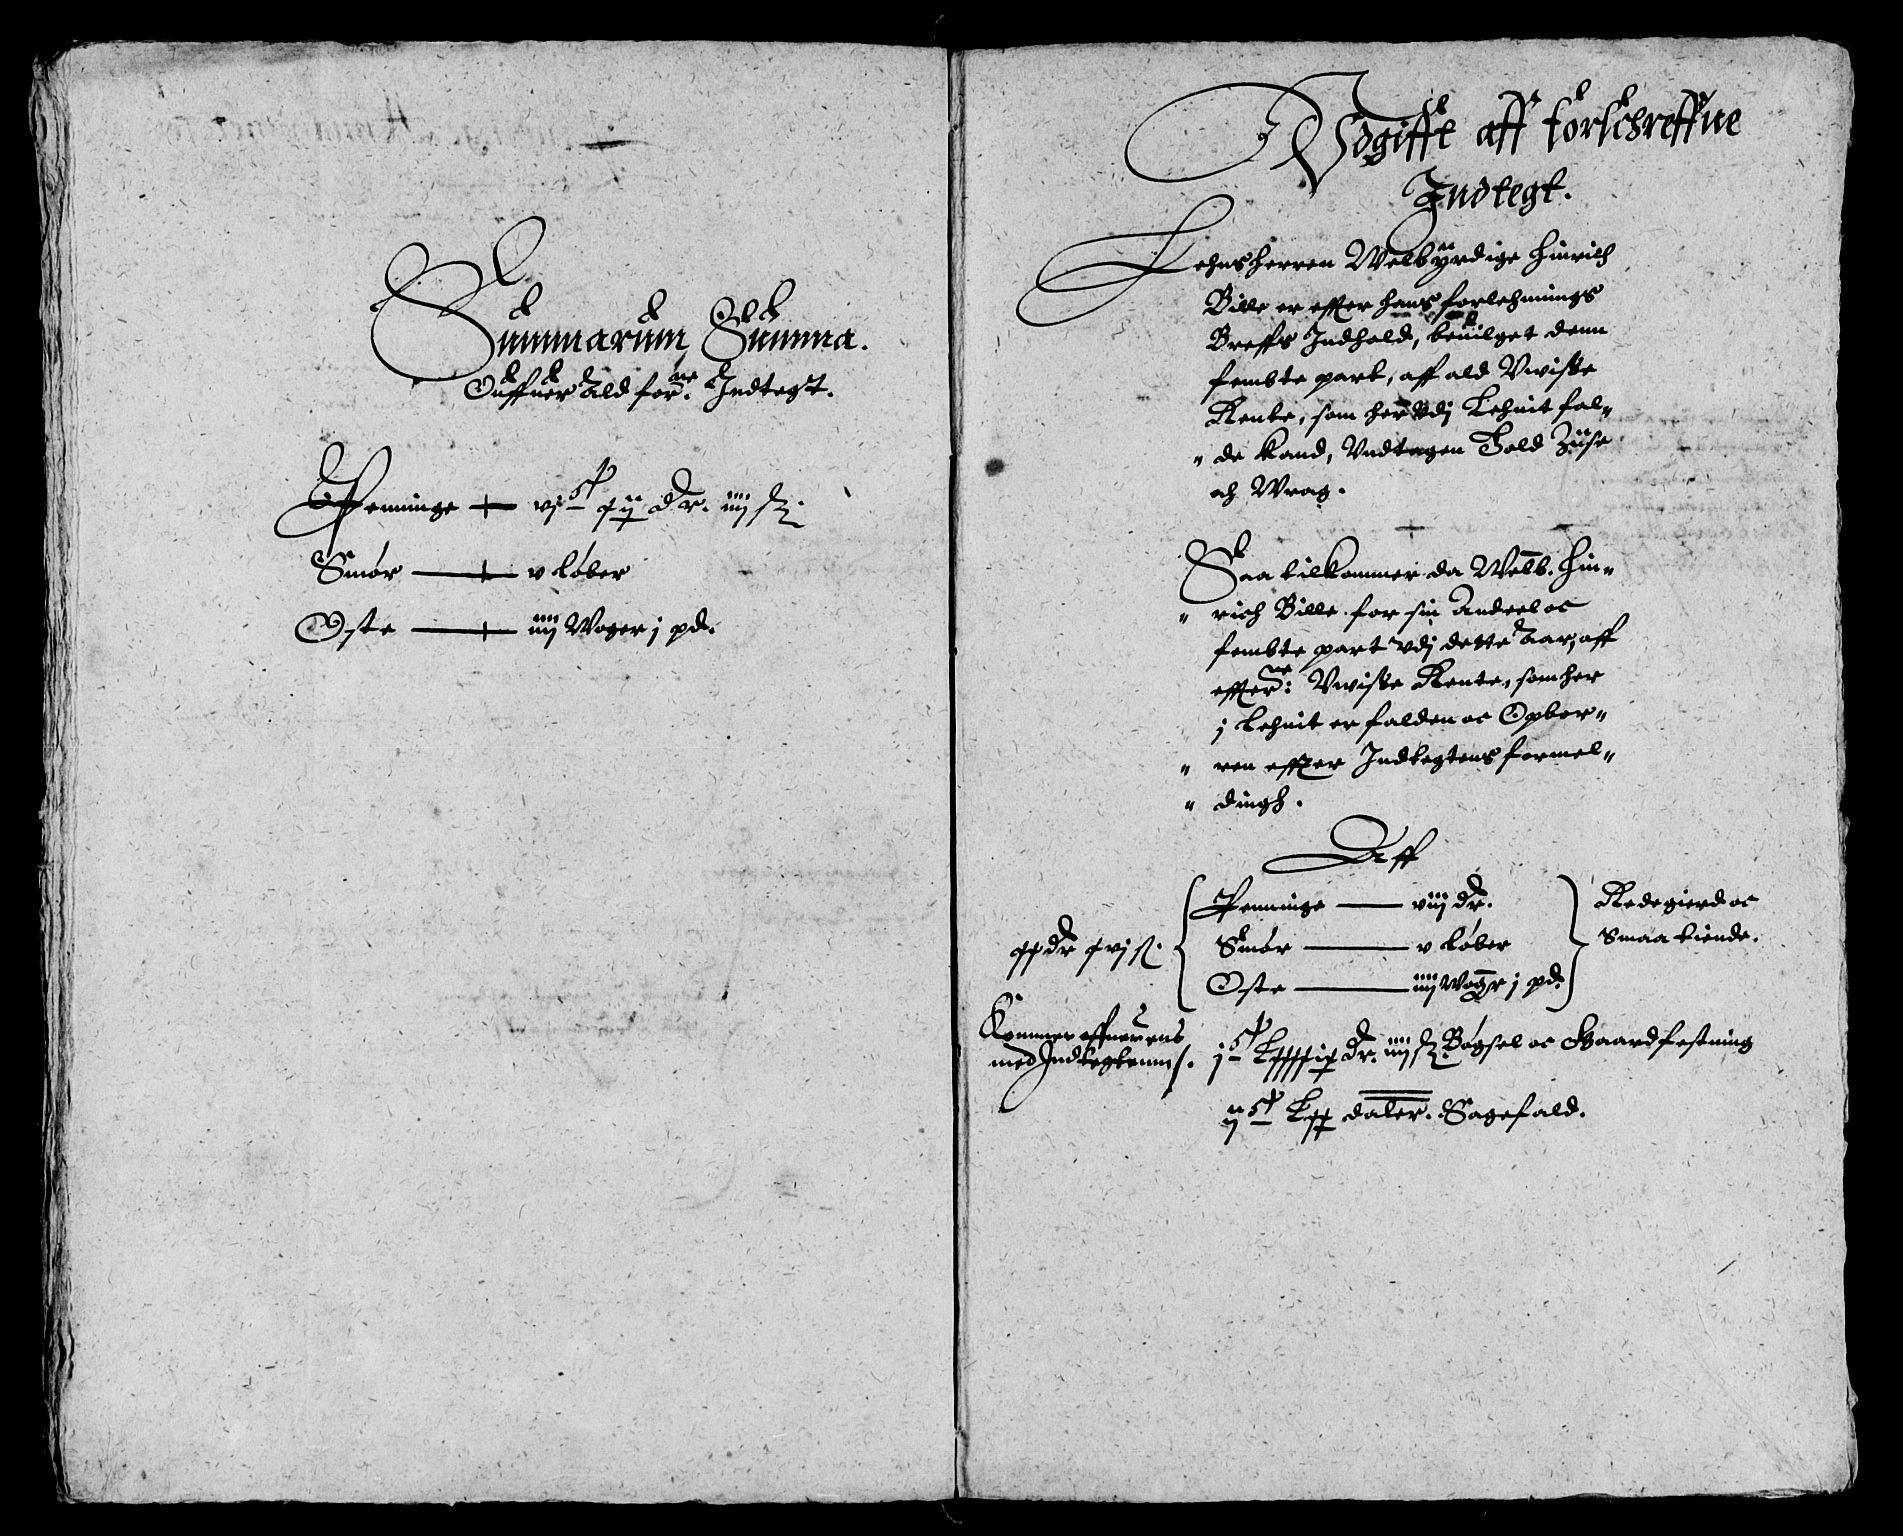 Summarum Summa.
Ouffuer ald forne. Indtegt.
Penninge — vjC xij Dr. iiij ſk.
Smør — v Løber
Oste — iiij Woger j pd.
Vdgifft aff forschreffne
Indtegt.
Lehnsherren Welbyrdige Hinrich
Bille er effter hans forlehnings
Breffs Indhold, beuilget denn
fembte part, aff ald Vwiſſe
Rente, som her vdj Lehnit fal„
„ de kand, Vndtagen Told Ziise
och Wrag.
Saa tilkommer da Welb. Hin„
„ rich Bille for sin Andeel oc
fembte part vdj dette Aar, aff
effterne: Vwiſſe Rente, som her
j Lehnit er falden oc Opbor„
„ ren effter Indtegtens formel„
„ dingh.
Aff
Penninge — viij Dr.
Smør — v Løber
Oste — iiij Woger j pd.
Redegierd oc
Smaa tiende.
xx Dr xvj ſk.
Kommer offuerens
med Indtegtenns.
jC Lxxxxix Dr. iiij ſk. Bøgsel oc Gaardfestning
ijC Lxx daler. Sagefald.